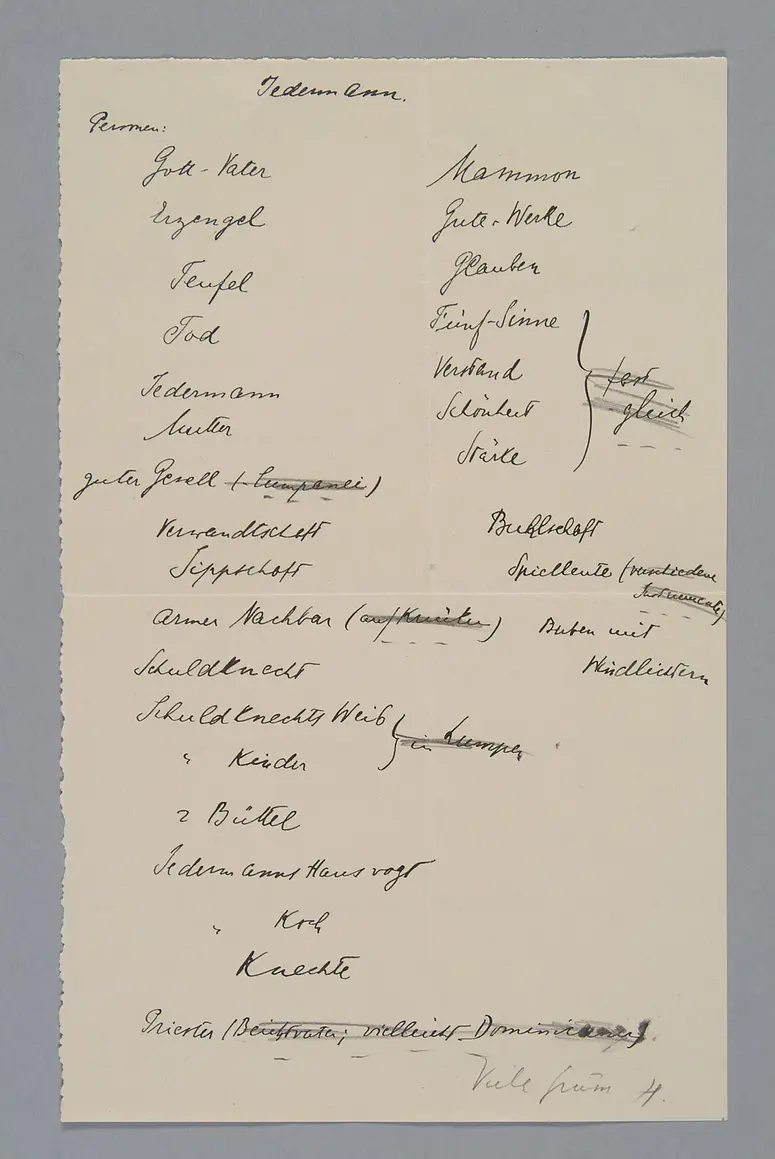 Jedermann.
Personen:
Gott-Vater
Erzengel
Teufel
Tod
Jedermann
Mutter
guter Gesell (Kumpanei)
Verwandtschaft
Sippschaft
Armer Nachbar (auf Krücken)
Schuldknecht
Schuldknechts Weib
" Kinder
in Lumpen
2 Büttel
Jedermanns Hausvogt
" Koch
Knechte
Mammon
Gute-Werke
Glauben
Fünf-Sinne
Verstand
Schönheit
Stärke
fast
gleich
Buhlschaft
Spielleute (verschiedene
Instrumente)
Buben mit
Windlichtern
Priester (Beichtvater; vielleicht Dominicaner).
Viele H.